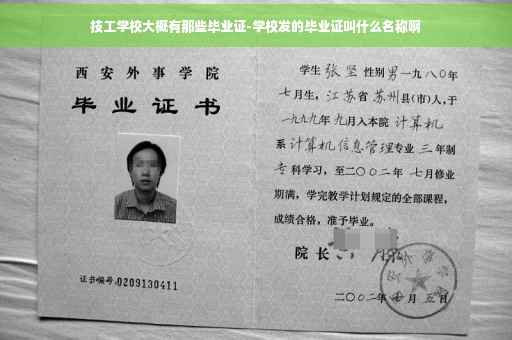 技工学校大概有那些毕业证-学校发的毕业证叫什么名称啊
西安外事学院
毕业证书
证书编号:0209130411
学生张坚性别男一九八〇年
七月生,江苏省苏州县(市)人,于
一九九九年九月入本院计算机
系计算机信息管理专业三年制
专科学习,至二〇〇二年七月修业
期满,学完教学计划规定的全部课程,
成绩合格,准予毕业。
院长
二〇〇二年七月五日